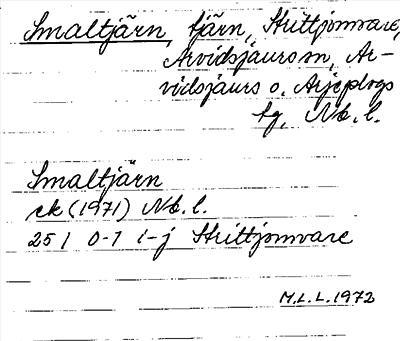 Smaltjärn, tjärn, Strittjomvare,
Arvidsjaurs sn, Ar-
vidsjaurs o. Arjeplogs
tg, Nb. l.
Smaltjärn
ek (1971) Nb. l.
25 I 0-1 i-j Strittjomvare
M.L.L. 1972